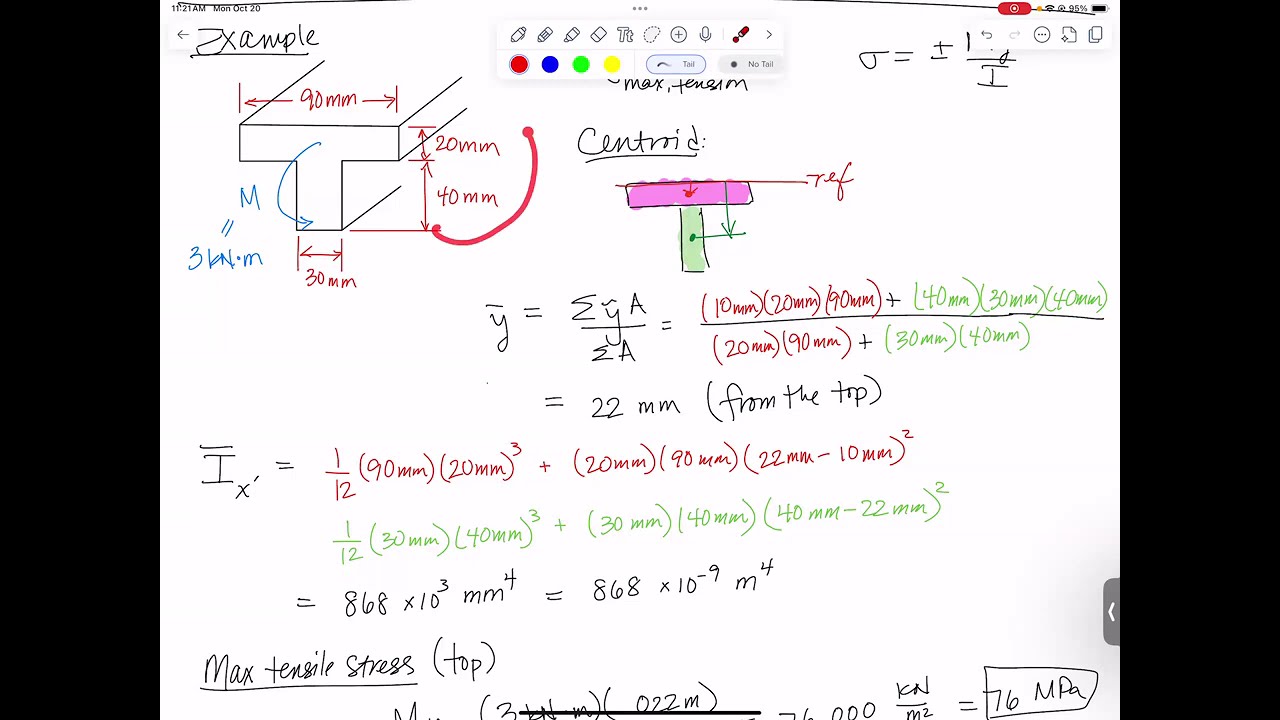 11:21AM Mon Oct 20
95%
Tail
No Tail
Example
σ = ± / I
max, tension
90mm
20mm
40mm
M
=
3 kN·m
30mm
Centroid:
ref
ȳ = ΣỹA / ΣA = (10mm)(20mm)(90mm) + (40mm)(30mm)(40mm) / (20mm)(90mm) + (30mm)(40mm)
= 22 mm (from the top)
Ī x' = 1/12 (90mm)(20mm)³ + (20mm)(90mm)(22mm - 10mm)²
1/12 (30mm)(40mm)³ + (30mm)(40mm)(40mm - 22mm)²
= 868 × 10³ mm⁴ = 868 × 10⁻⁹ m⁴
Max tensile stress (top)
(3 kN·m)(.022m) = 76,000 kN/m² = 76 MPa